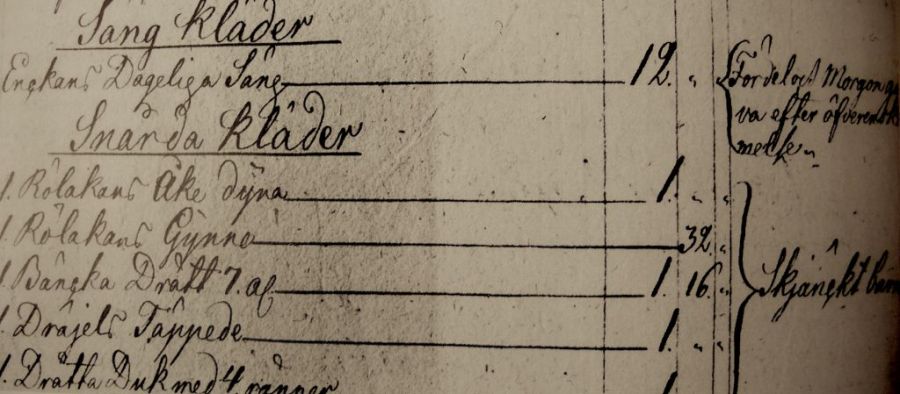 Säng Kläder
Enckans Dageliga Säng 12. "
Fördeloct Morgongå
va efter öfverens k
melse "
Snärda Kläder
1. Rölakans Åke dÿna 1. " "
1. Rölakans Gÿnne 32. "
1. Bäncka Drätt 7. al 1. 16. "
Skjänckt barn
1. Dräjels Täppede 1. " "
1. Drätta Duk med 4. ränner 1